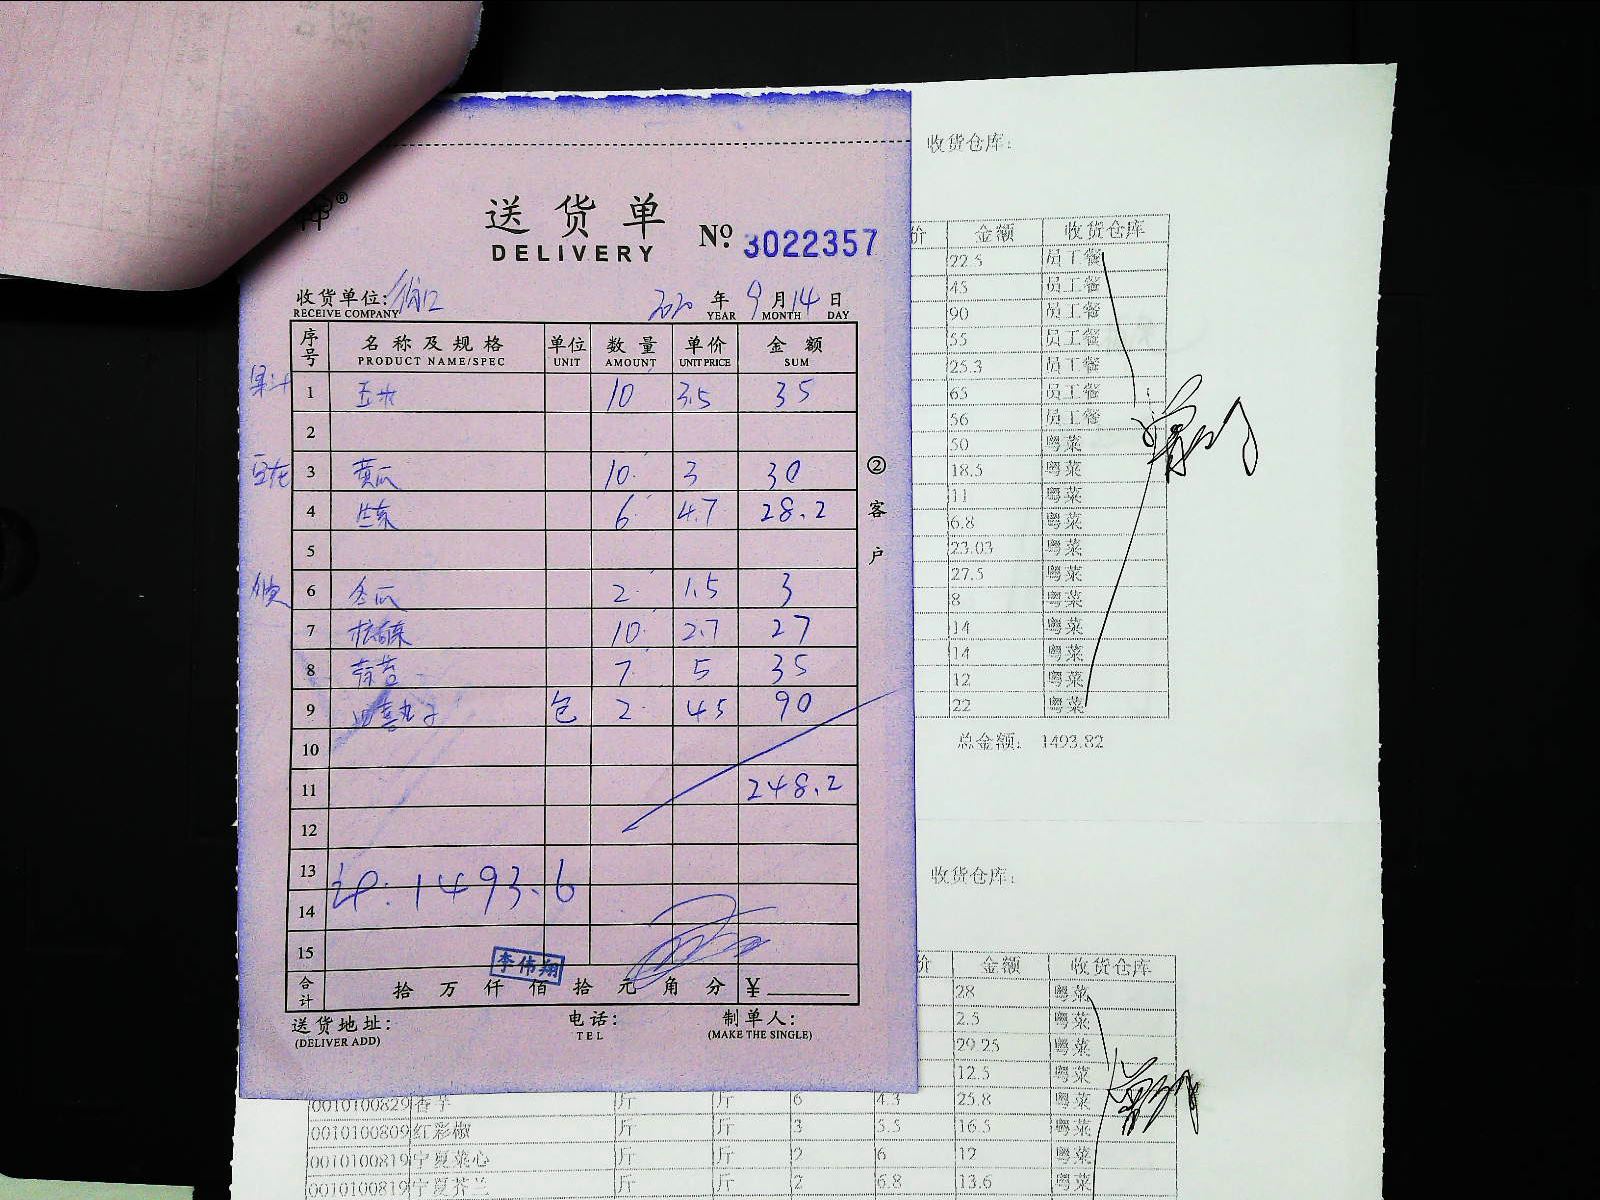 送货单
DELIVERY
№ 3022357
收货单位:
RECEIVE COMPANY
2020 年 9 月 14 日
YEAR MONTH DAY
序号 名称及规格 单位 数量 单价 金额
PRODUCT NAME/SPEC UNIT AMOUNT UNIT PRICE SUM
1 10 3.5 35
2
3 黄瓜 10 3 30
4 6 4.7 28.2
5
6 冬瓜 2 1.5 3
7 10 2.7 27
8 7 5 35
9 四喜丸子 包 2 45 90
10
11 248.2
12
13
1493.6
14
15
李伟翔
合计 拾 万 仟 佰 拾 元 角 分 ¥
送货地址: 电话: 制单人:
(DELIVER ADD) TEL (MAKE THE SINGLE)
②客户
收货仓库:
价 金额 收货仓库
22.5 员工餐
45 员工餐
90 员工餐
55 员工餐
25.3 员工餐
65 员工餐
56 员工餐
50 粤菜
18.5 粤菜
11 粤菜
6.8 粤菜
23.03 粤菜
27.5 粤菜
8 粤菜
14 粤菜
14 粤菜
12 粤菜
22 粤菜
总金额: 1493.82
收货仓库:
价 金额 收货仓库
28 粤菜
2.5 粤菜
29.25 粤菜
12.5 粤菜
0010100829 香芋 斤 斤 6 4.3 25.8 粤菜
0010100809 红彩椒 斤 斤 3 5.5 16.5 粤菜
0010100819 宁夏菜心 斤 斤 2 6 12 粤菜
0010100819 宁夏芥兰 斤 斤 2 6.8 13.6 粤菜